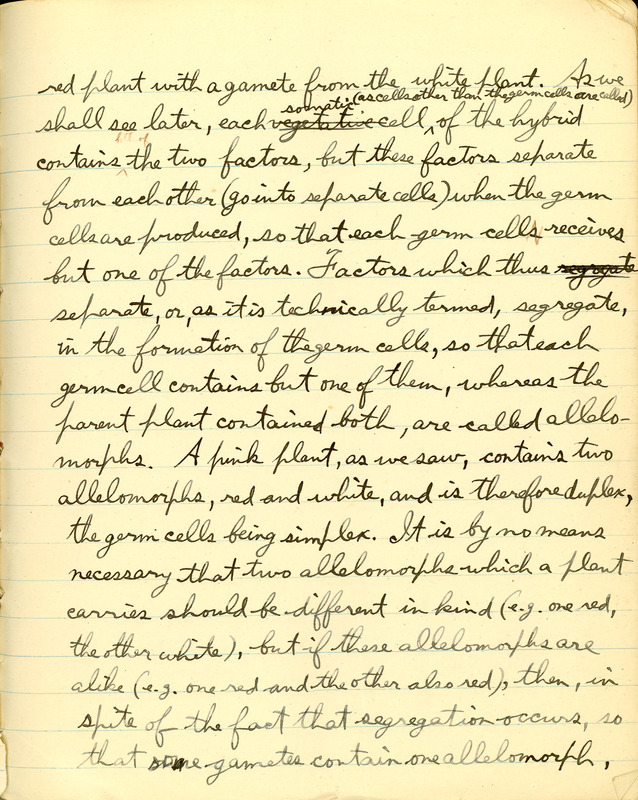 red plant with a gamete from the white plant. As we
somatic (as cells other than the germ cells are called)
shall see later, each vegetative cell ^ of the hybrid
contains the two factors, but these factors separate
from each other (go into separate cells) when the germ
cells are produced, so that each germ cell receives
but one of the factors. Factors which thus segregate
separate, or, as it is technically termed, segregate,
in the formation of the germ cells, so that each
germ cell contains but one of them, whereas the
parent plant contained both, are called allelo-
morphs. A pink plant, as we saw, contains two
allelomorphs, red and white, and is therefore duplex,
the germ cells being simplex. It is by no means
necessary that two allelomorphs which a plant
carries should be different in kind (e.g. one red,
the other white), but if these allelomorphs are
alike (e.g. one red and the other also red), then, in
spite of the fact that segregation occurs, so
that some gametes contain one allelomorph,